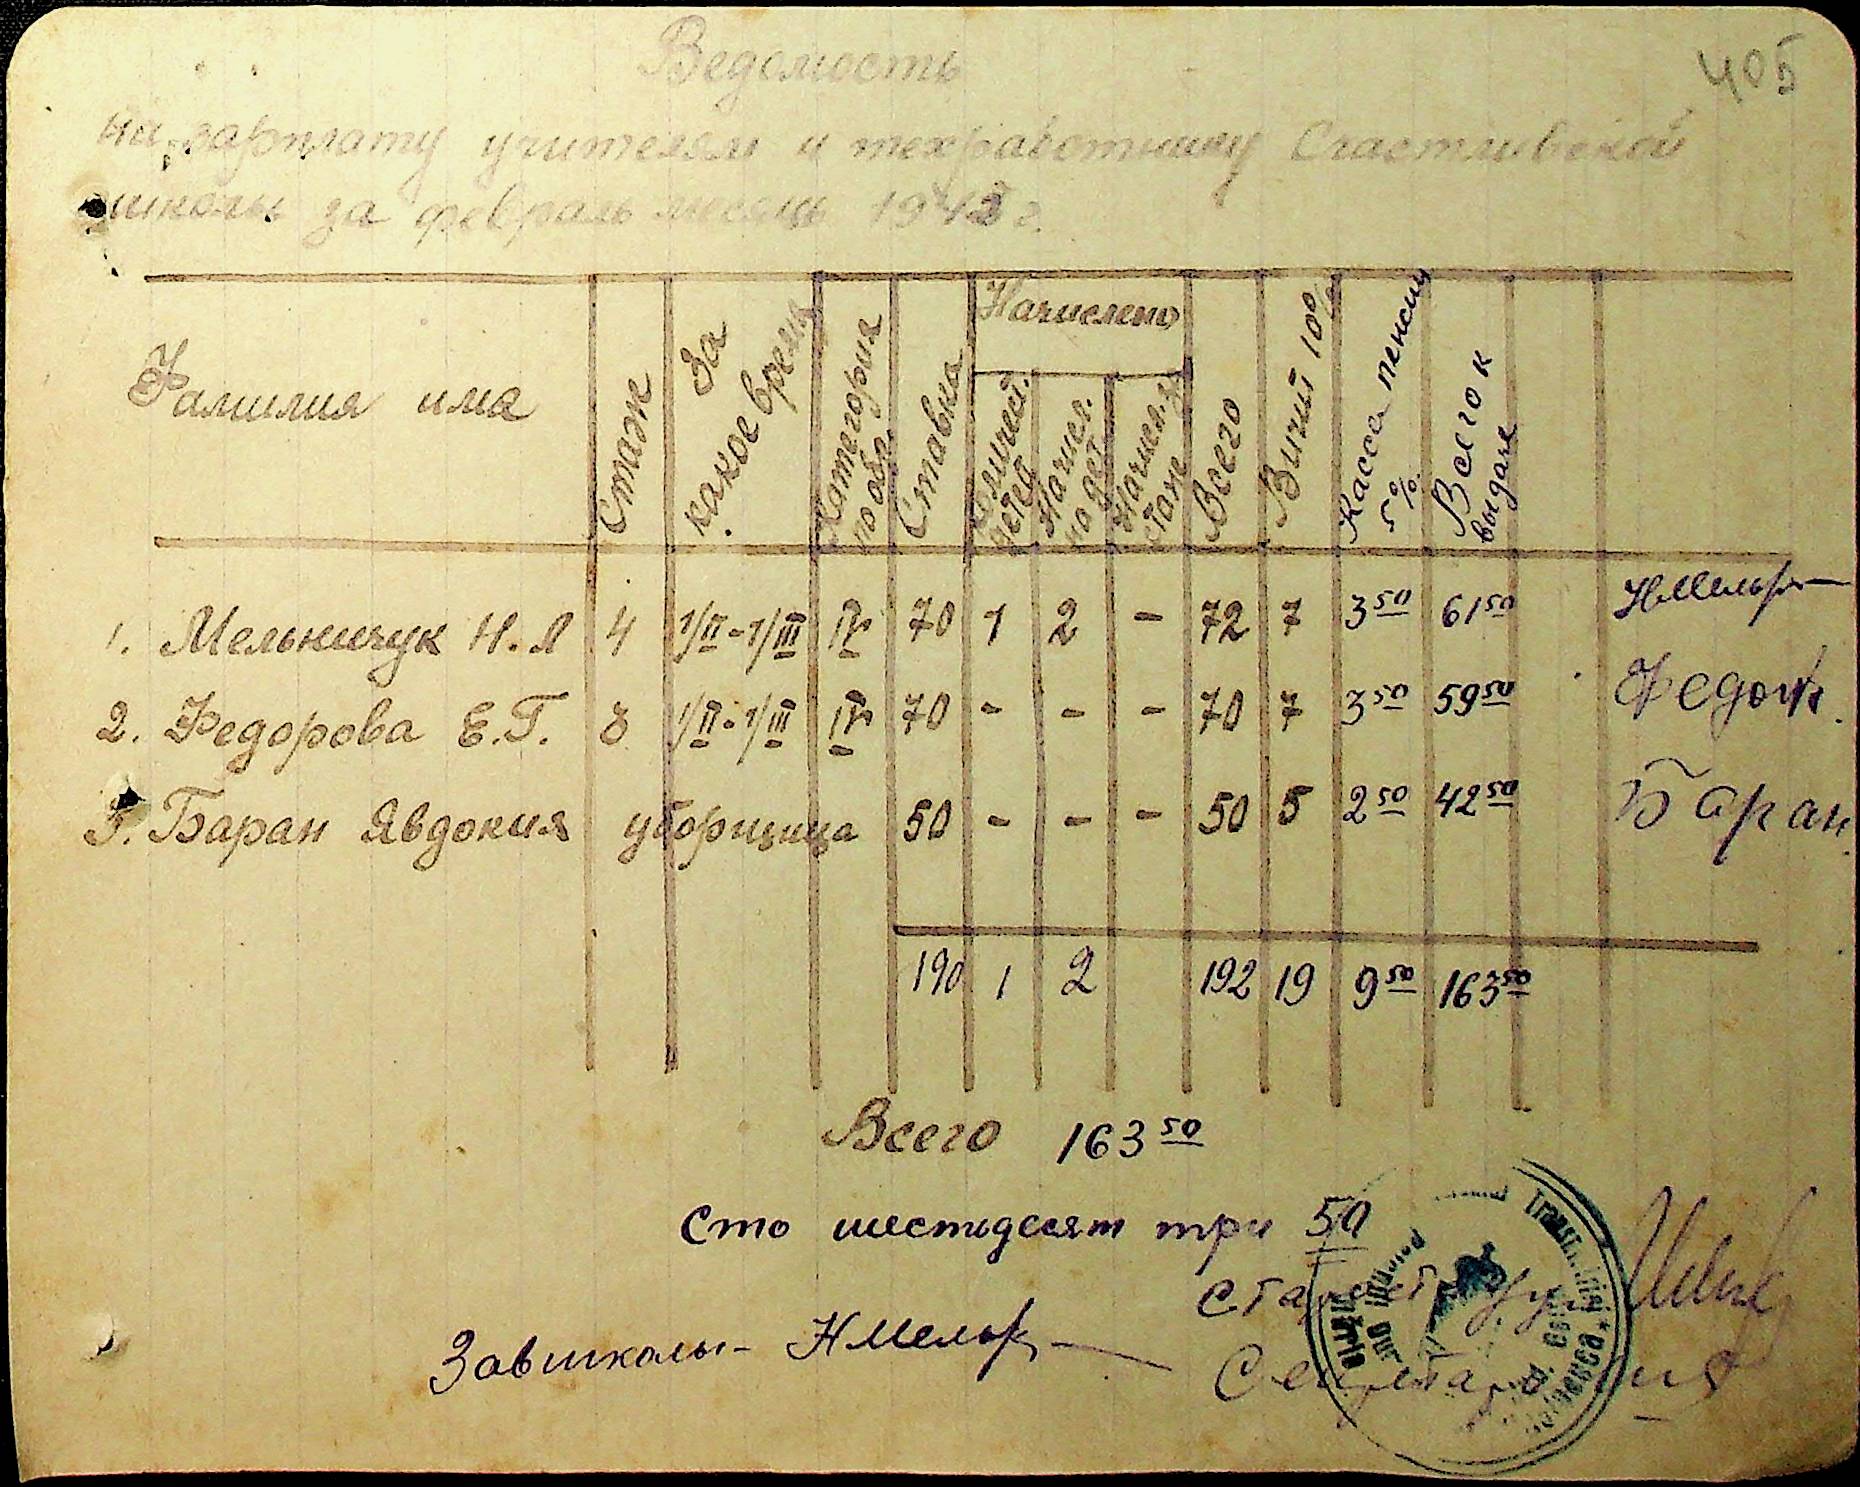 405
Ведомость
на зарплату учителям и техработнику Счастливской
школы за февраль месяць 1943 г.
Фамилия има Стаж За какое время Категория по обр. Ставка Начислено Всего Вичит 10% Касса пенсии 5% Всего к выдаче
Количест. детей Начисл. на дет. Начисл. стаж
1. Мельничук Н.Я 4 1/II-1/III IV 70 1 2 - 72 7 3 50 61 50 НМельр
2. Федорова Е.Г. 3 1/II-1/III IV 70 - - - 70 7 3 50 59 50 Федор
3. Баран Явдокия уборщица 50 - - - 50 5 2 50 42 50 Баран
190 1 2 192 19 9 50 163 50
Всего 163 50
Сто шестьдесят три 50
Староста
Завшколы- НМельр
Секретарь